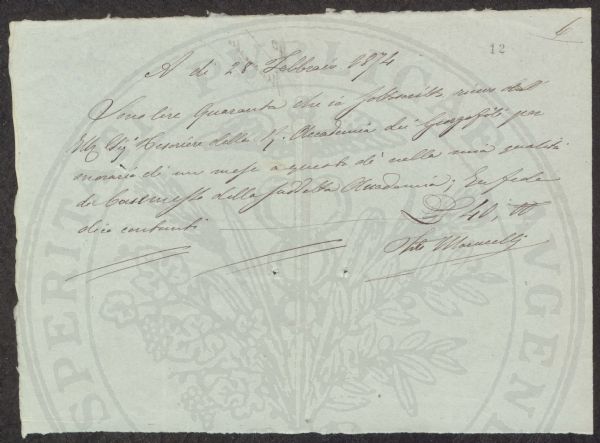 6
12
A dì 28 Febbraio 1874
Sono lire Quaranta che io sottoscritto ricevo dall'
Ill. Sig. Tesoriere della R. Accademia dei Georgofili per
onorario di un mese a questo dì nella mia qualità
di Custode della suddetta Accademia; In fede
dico contanti £ 40, 00
PROSPERITATI PUBLICAE AUGENDAE